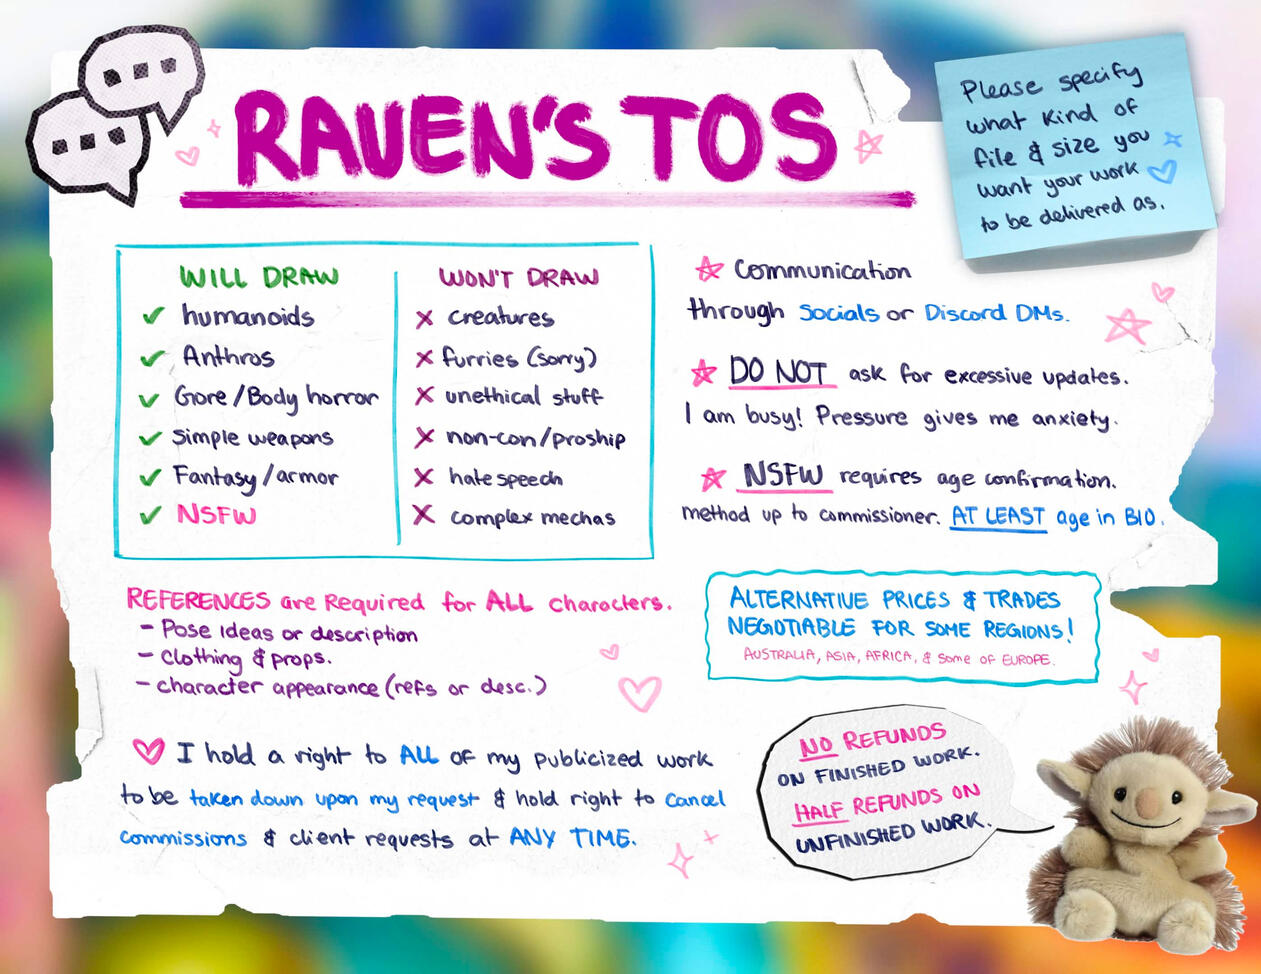 RAVEN'S TOS
Please specify
what kind of
file & size you
want your work
to be delivered as.
WILL DRAW
humanoids
Anthros
Gore/Body horror
simple weapons
Fantasy/armor
NSFW
WON'T DRAW
creatures
furries (sorry)
unethical stuff
non-con/proship
hate speech
complex mechas
Communication
through Socials or Discord DMs.
DO NOT ask for excessive updates.
I am busy! Pressure gives me anxiety.
NSFW requires age confirmation.
method up to commissioner. AT LEAST age in BIO.
REFERENCES are Required for ALL characters.
- Pose Ideas or description
- Clothing & props.
- character appearance (refs or desc.)
ALTERNATIVE PRICES & TRADES
NEGOTIABLE FOR SOME REGIONS!
AUSTRALIA, ASIA, AFRICA, & some of EUROPE.
I hold a right to ALL of my publicized work
to be taken down upon my request & hold right to cancel
commissions & client requests at ANY TIME.
NO REFUNDS
ON FINISHED WORK.
HALF REFUNDS ON
UNFINISHED WORK.